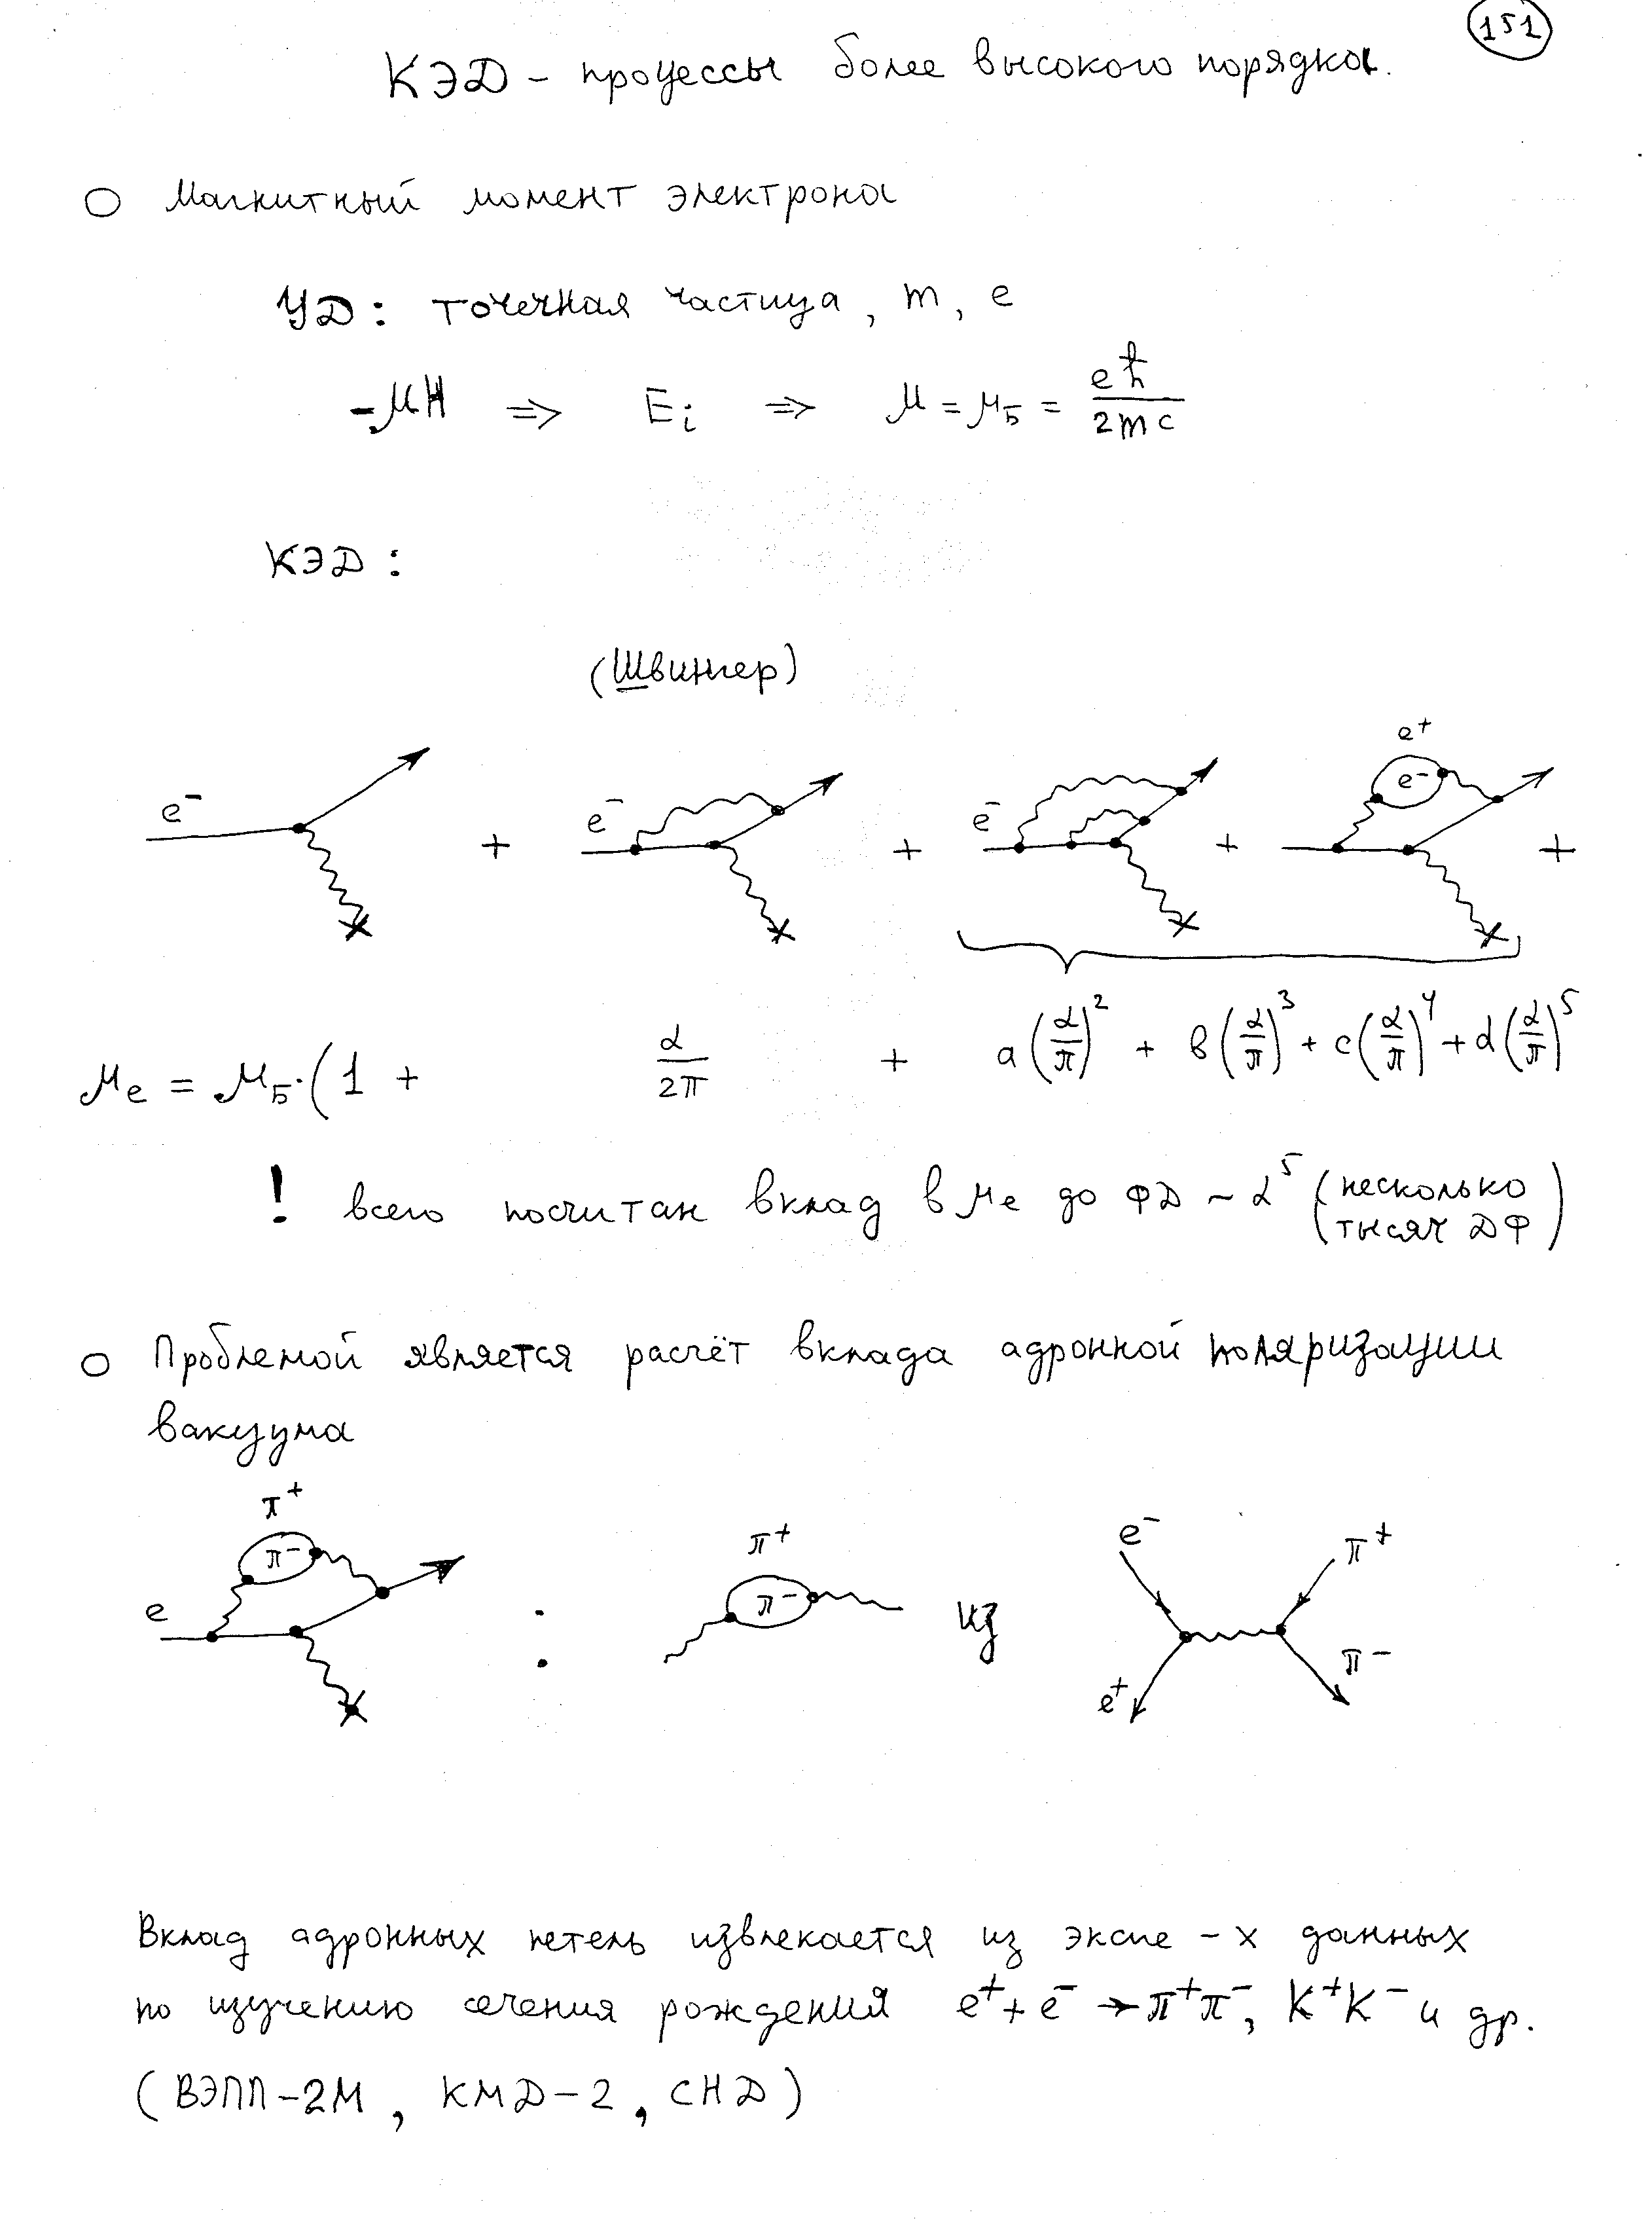 151
КЭД - процессы более высокого порядка.
○ Магнитный момент электрона
УД: точечная частица, m, e
-μH ⇒ E_i ⇒ μ = μ_Б = eħ/2mc
КЭД:
(Швингер)
e⁺
e⁻ + e⁻ + e⁻ + e⁻ +
μ_e = μ_Б·(1 + α/2π + a(α/π)² + в(α/π)³ + c(α/π)⁴ + d(α/π)⁵
! всего посчитан вклад в μ_e до ФД ~ α⁵ (несколько тысяч ДФ)
○ Проблемой является расчёт вклада адронной поляризации
вакуума
π⁺ π⁺ e⁻ π⁺
π⁻ π⁻
e : из
π⁻
e⁺
Вклад адронных петель извлекается из экспе-х данных
по изучению сечения рождения e⁺+e⁻→π⁺π⁻, K⁺K⁻ и др.
(ВЭПП-2М, КМД-2, СНД)